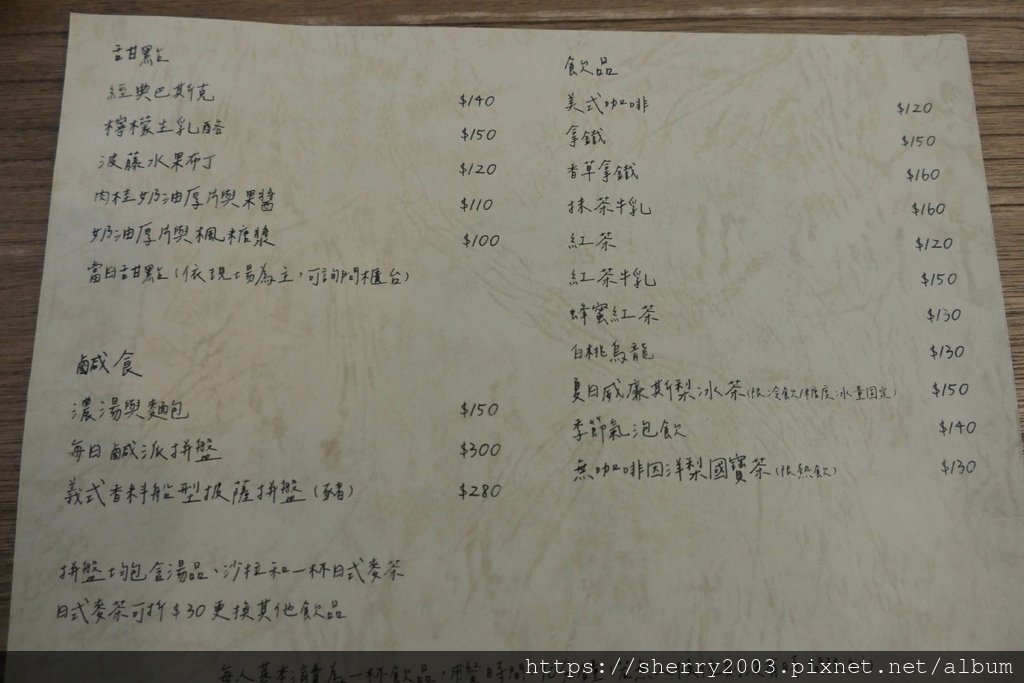 甜點
經典巴斯克 $140
檸檬生乳酪 $150
波藤水果布丁 $120
肉桂奶油厚片與果醬 $110
奶油厚片與楓糖漿 $100
當日甜點(依現場為主,可詢問櫃台)
鹹食
濃湯與麵包 $150
每日鹹派拼盤 $300
義式香料船型披薩拼盤(豬) $280
拼盤均包含湯品、沙拉和一杯日式麥茶
日式麥茶可折$30更換其他飲品
飲品
美式咖啡 $120
拿鐵 $150
香草拿鐵 $160
抹茶牛乳 $160
紅茶 $120
紅茶牛乳 $150
蜂蜜紅茶 $130
白桃烏龍 $130
夏日威廉斯梨冰茶(限冷飲/糖度冰量固定) $150
季節氣泡飲 $140
無咖啡因洋梨國寶茶(限熱飲) $130
每人基本消費為一杯飲品,用餐時間
https://sherry2003.pixnet.net/album